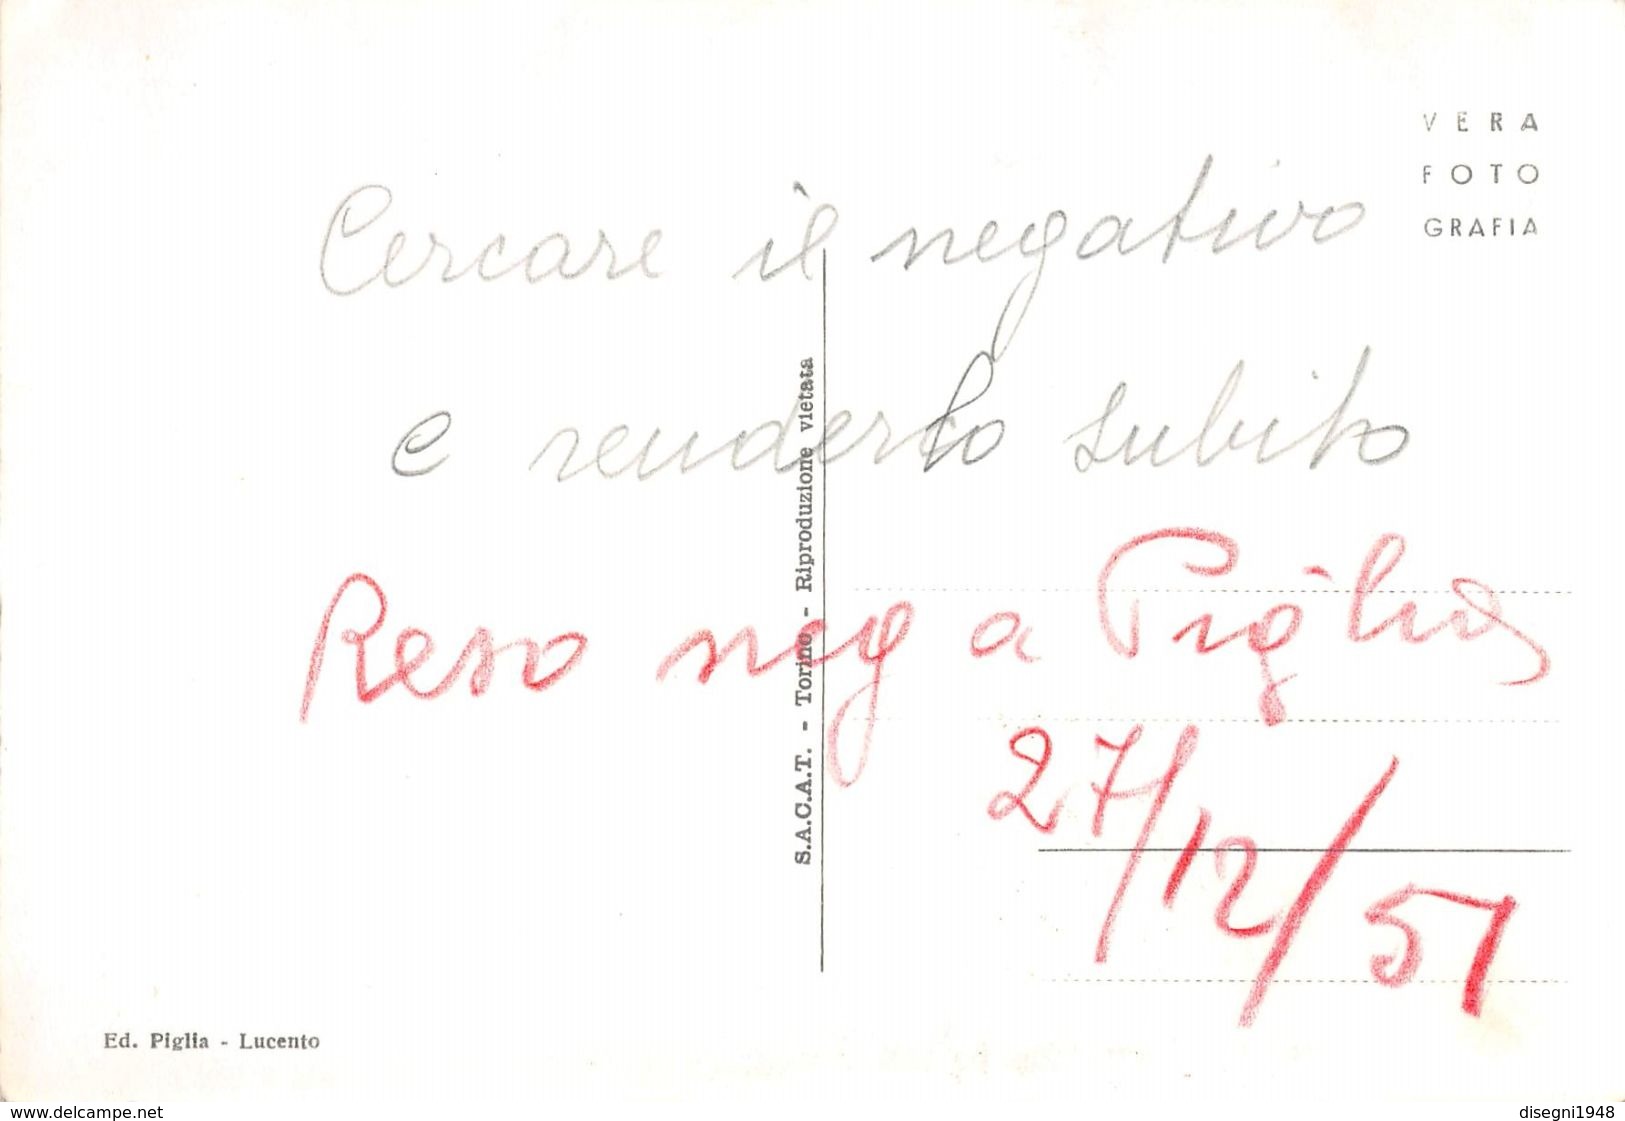 VERA
FOTO
GRAFIA
Cercare il negativo
e renderlo subito
Reso neg a Piglia
27/12/51
S.A.C.A.T. - Torino - Riproduzione vietata
Ed. Piglia - Lucento
www.delcampe.net
disegni1948